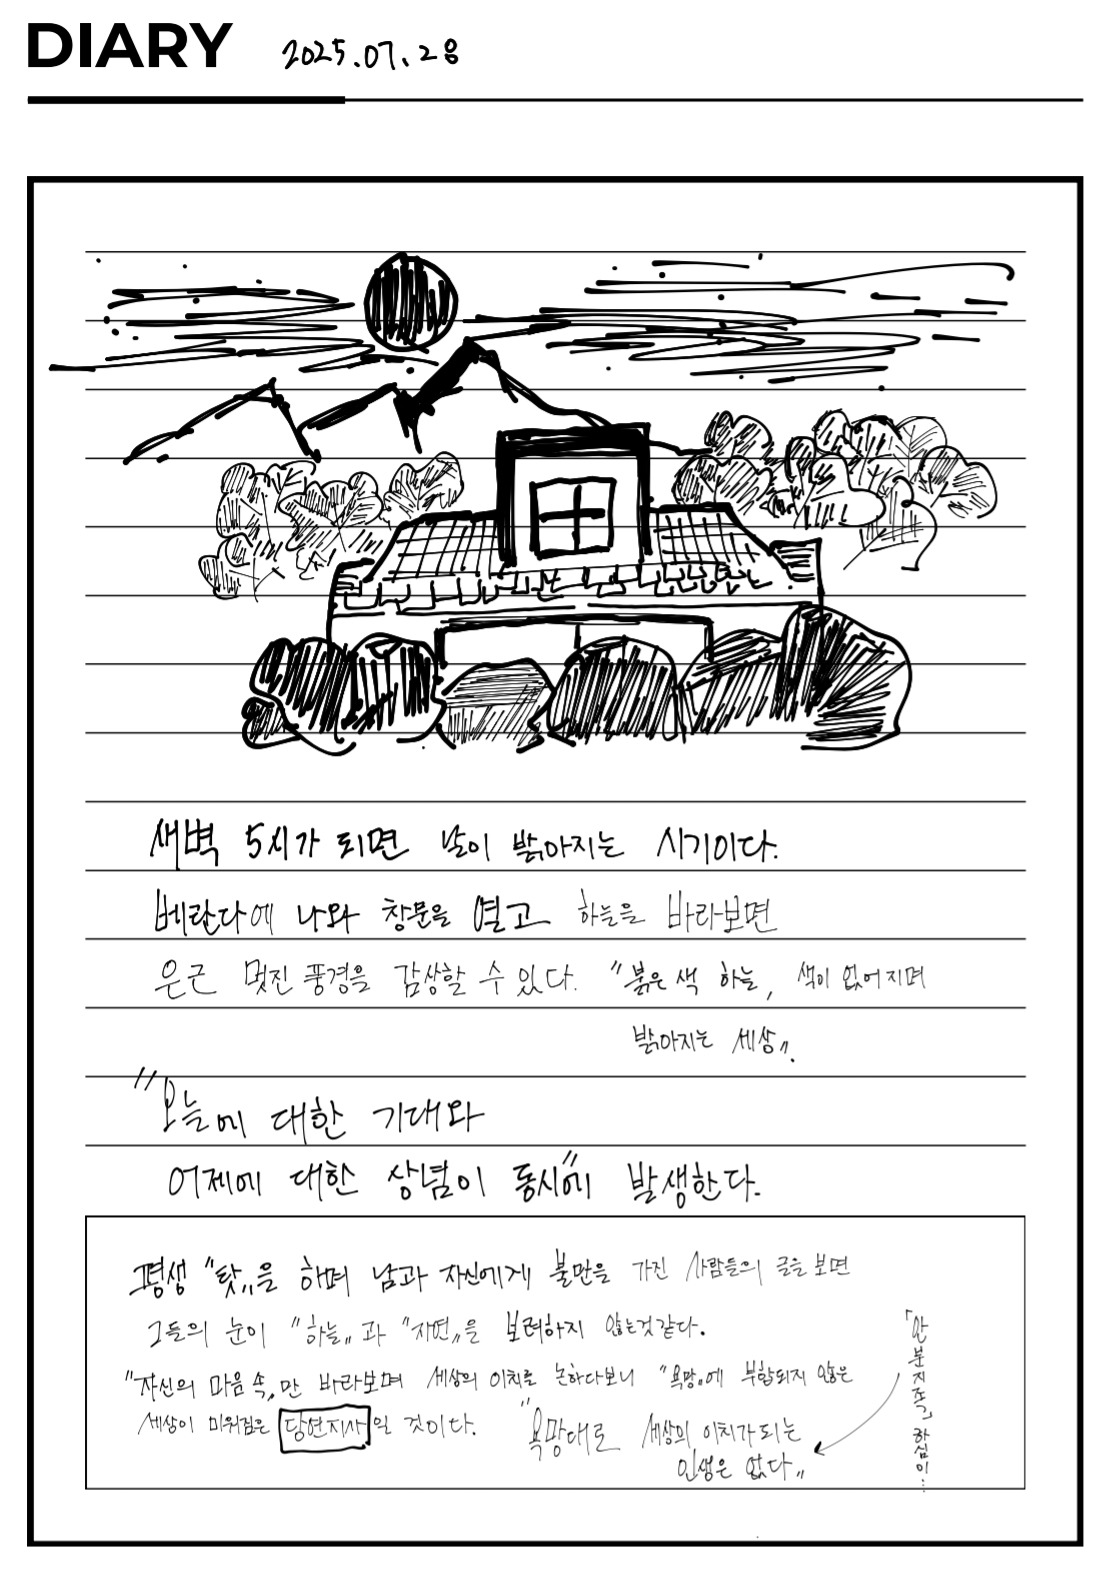 DIARY 2025.07.28
새벽 5시가 되면 날이 밝아지는 시기이다.
베란다에 나와 창문을 열고 하늘을 바라보면
은근 멋진 풍경을 감상할 수 있다. "붉은 색 하늘, 색이 없어지며
밝아지는 세상".
"오늘에 대한 기대와
어제에 대한 상념이 동시"에 발생한다.
평생 "탓"을 하며 남과 자신에게 불만을 가진 사람들의 글을 보면
그들의 눈이 "하늘"과 "자연"을 보려하지 않는것같다.
"자신의 마음 속"만 바라보며 세상의 이치를 논하다보니 "욕망"에 부합되지 않은
세상이 미워짐은 당연지사일 것이다.
"욕망대로 세상의 이치가 되는
인생은 없다"
「안분지족」하심이...